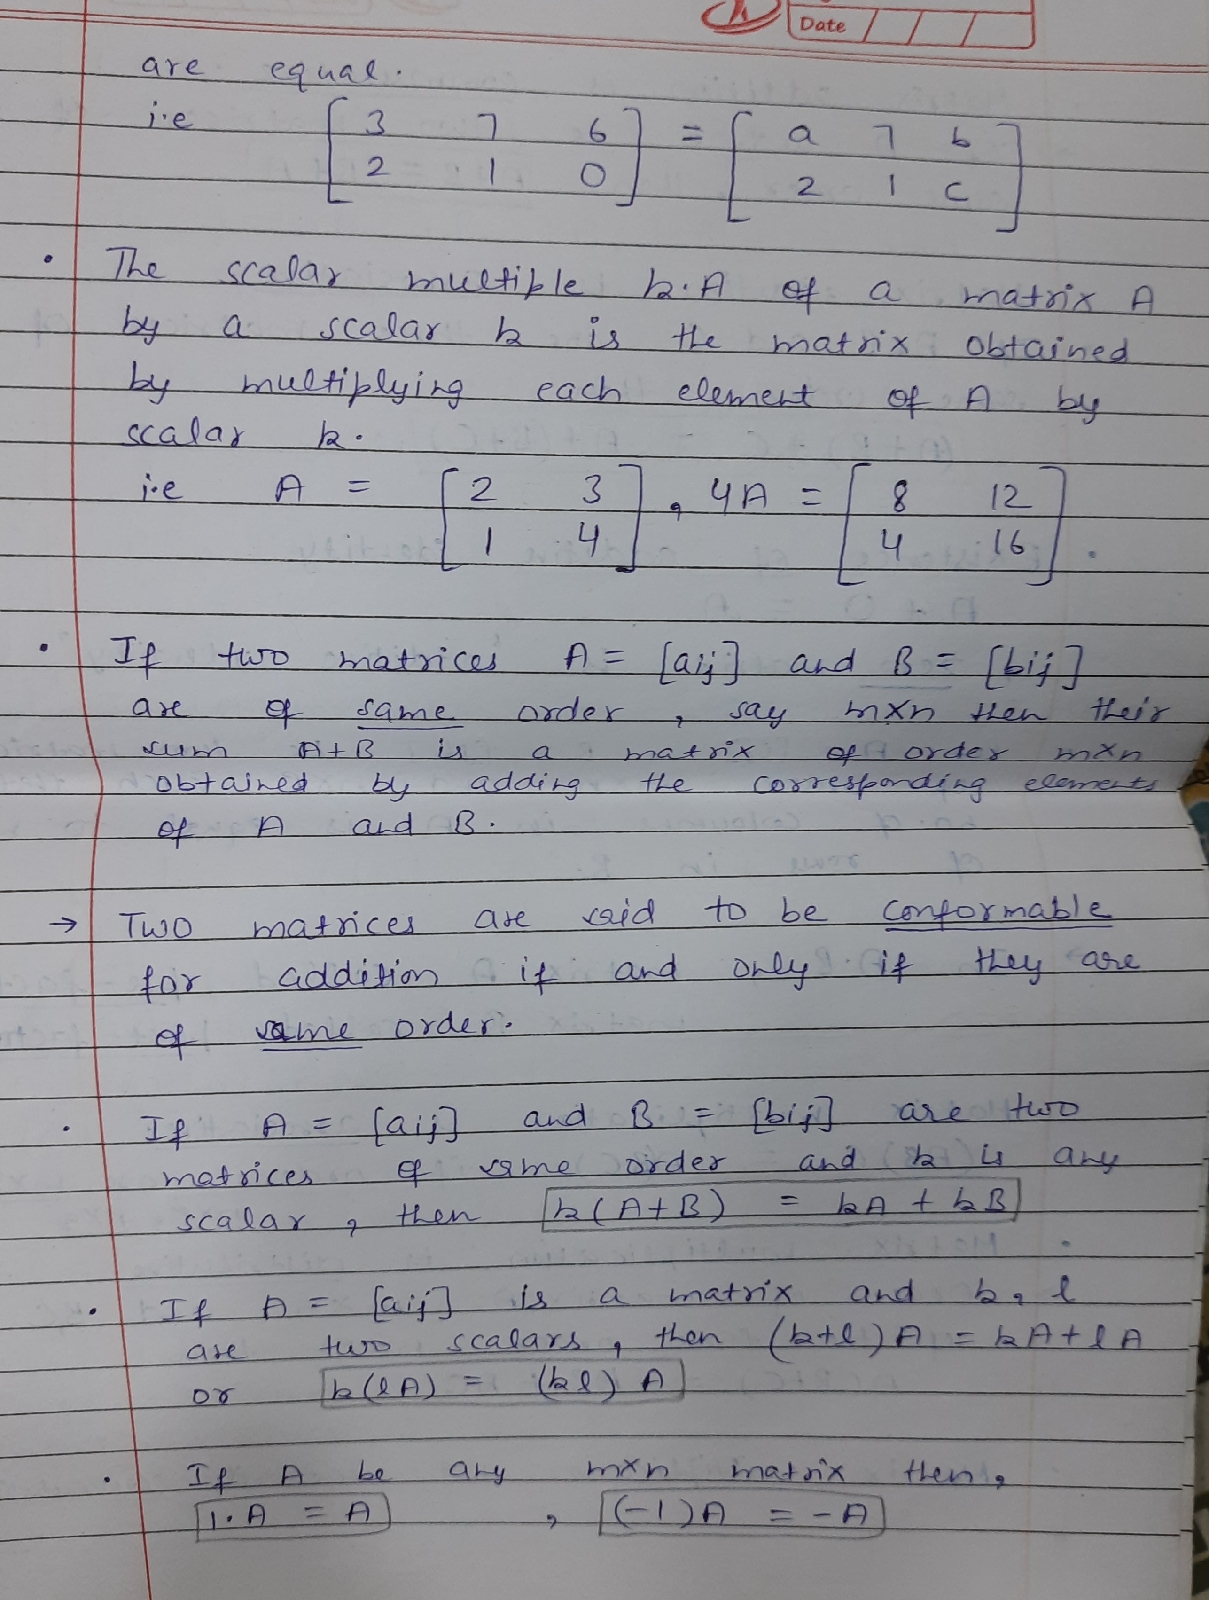 Date
are equal.
i.e [3 7 6] = [a 7 b]
[2 1 0] [2 1 c]
• The scalar multiple k.A of a matrix A
by a scalar k is the matrix obtained
by multiplying each element of A by
scalar k.
i.e A = [2 3], 4A = [8 12]
[1 4] [4 16].
• If two matrices A = [aij] and B = [bij]
are of same order, say m×n then their
sum A+B is a matrix of order m×n
obtained by adding the corresponding elements
of A and B.
→ Two matrices are said to be conformable
for addition if and only if they are
of same order.
• If A = [aij] and B = [bij] are two
matrices of same order and k is any
scalar, then k(A+B) = kA + kB
• If A = [aij] is a matrix and k, l
are two scalars, then (k+l)A = kA+lA
or k(lA) = (kl)A
• If A be any m×n matrix then,
1.A = A , (-1)A = -A